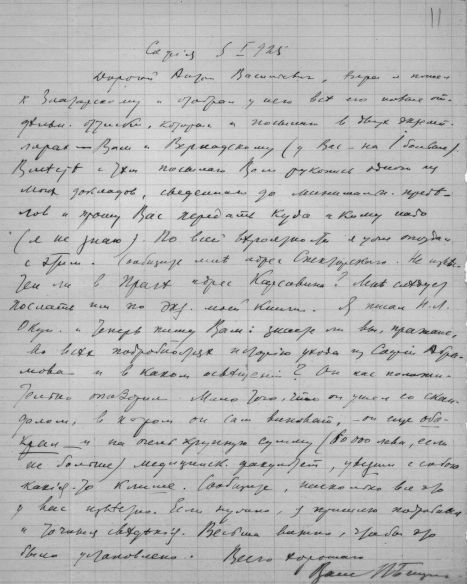 11
София 5 I 925
Дорогой Антон Васильевич, вчера я пошел
к Златарскому и отобрал у него все его новые от-
дельн. оттиски, которые и посылаю в двух экзем-
плярах — Вам и Вернадскому (у Вас — на 1 больше).
Вместе с тем посылаю Вам рукопись одного из
моих докладов, сведенный до минимальн. преде-
лов и прошу Вас передать куда и кому надо
(я не знаю). По всей вероятности я уже опоздал
с этим. Сообщите мне адрес Спекторского. Не извес-
тен ли в Праге адрес Карсавина? Мне следует
послать им по экз. моей книги. Я писал Н.Л.
Окун. и теперь пишу Вам: знаете ли вы, пражане,
во всех подробностях историю ухода из Софии Абра-
мова и в каком освещении? Он нас положи-
тельно опозорил. Мало того, что он ушел со скан-
далом, в котором он сам виноват, он еще обо-
крал и на очень крупную сумму (80 000 лева, если
не больше) медицинск. факультет, увезши с собою
какия-то клише. Сообщите, насколько все это
у вас известно. Если нужно, я пришлю подробныя
и точныя сведения. Весьма важно, чтобы это
было установлено. Всего хорошаго
Ваш